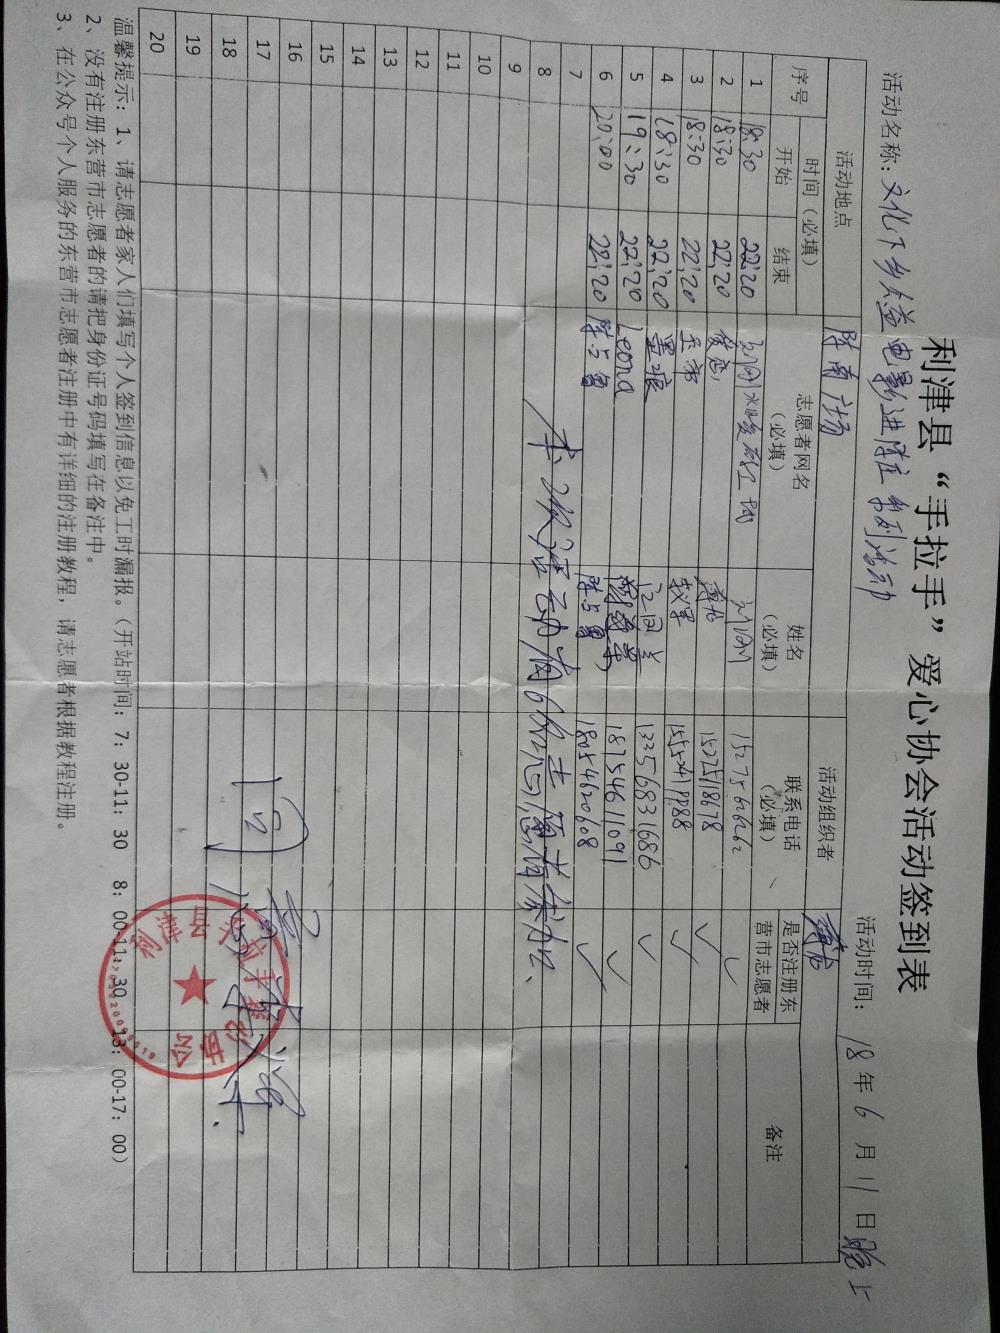 利津县“手拉手”爱心协会活动签到表
活动名称：文化下乡公益电影进陈庄系列活动 活动时间：18年6月11日晚上
活动地点 陈南广场 活动组织者
序号 时间（必填） 志愿者网名（必填） 姓名（必填） 联系电话（必填） 是否注册东营市志愿者 备注
开始 结束
1 18:30 22:20 15275626262 ✓
2 18:30 22:20 ✓
3 18:30 22:20 ✓
4 18:30 22:20 墨痕 13356831686 ✓
5 19:30 22:20 Leona 18754611091 ✓
6 20:00 22:20 陈占鲁 陈占鲁 18054620608 ✓
7
8 本次活动有6位志愿者参加。
9
10
11
12
13
14
15
16
17
18
19
20
温馨提示：1、请志愿者家人们填写个人签到信息以免工时漏报。（开站时间：7：30-11：30 8：00-11：30 13：00-17：00）
2、没有注册东营市志愿者的请把身份证号码填写在备注中。
3、在公众号个人服务的东营市志愿者注册中有详细的注册教程，请志愿者根据教程注册。
利津县手拉手爱心协会